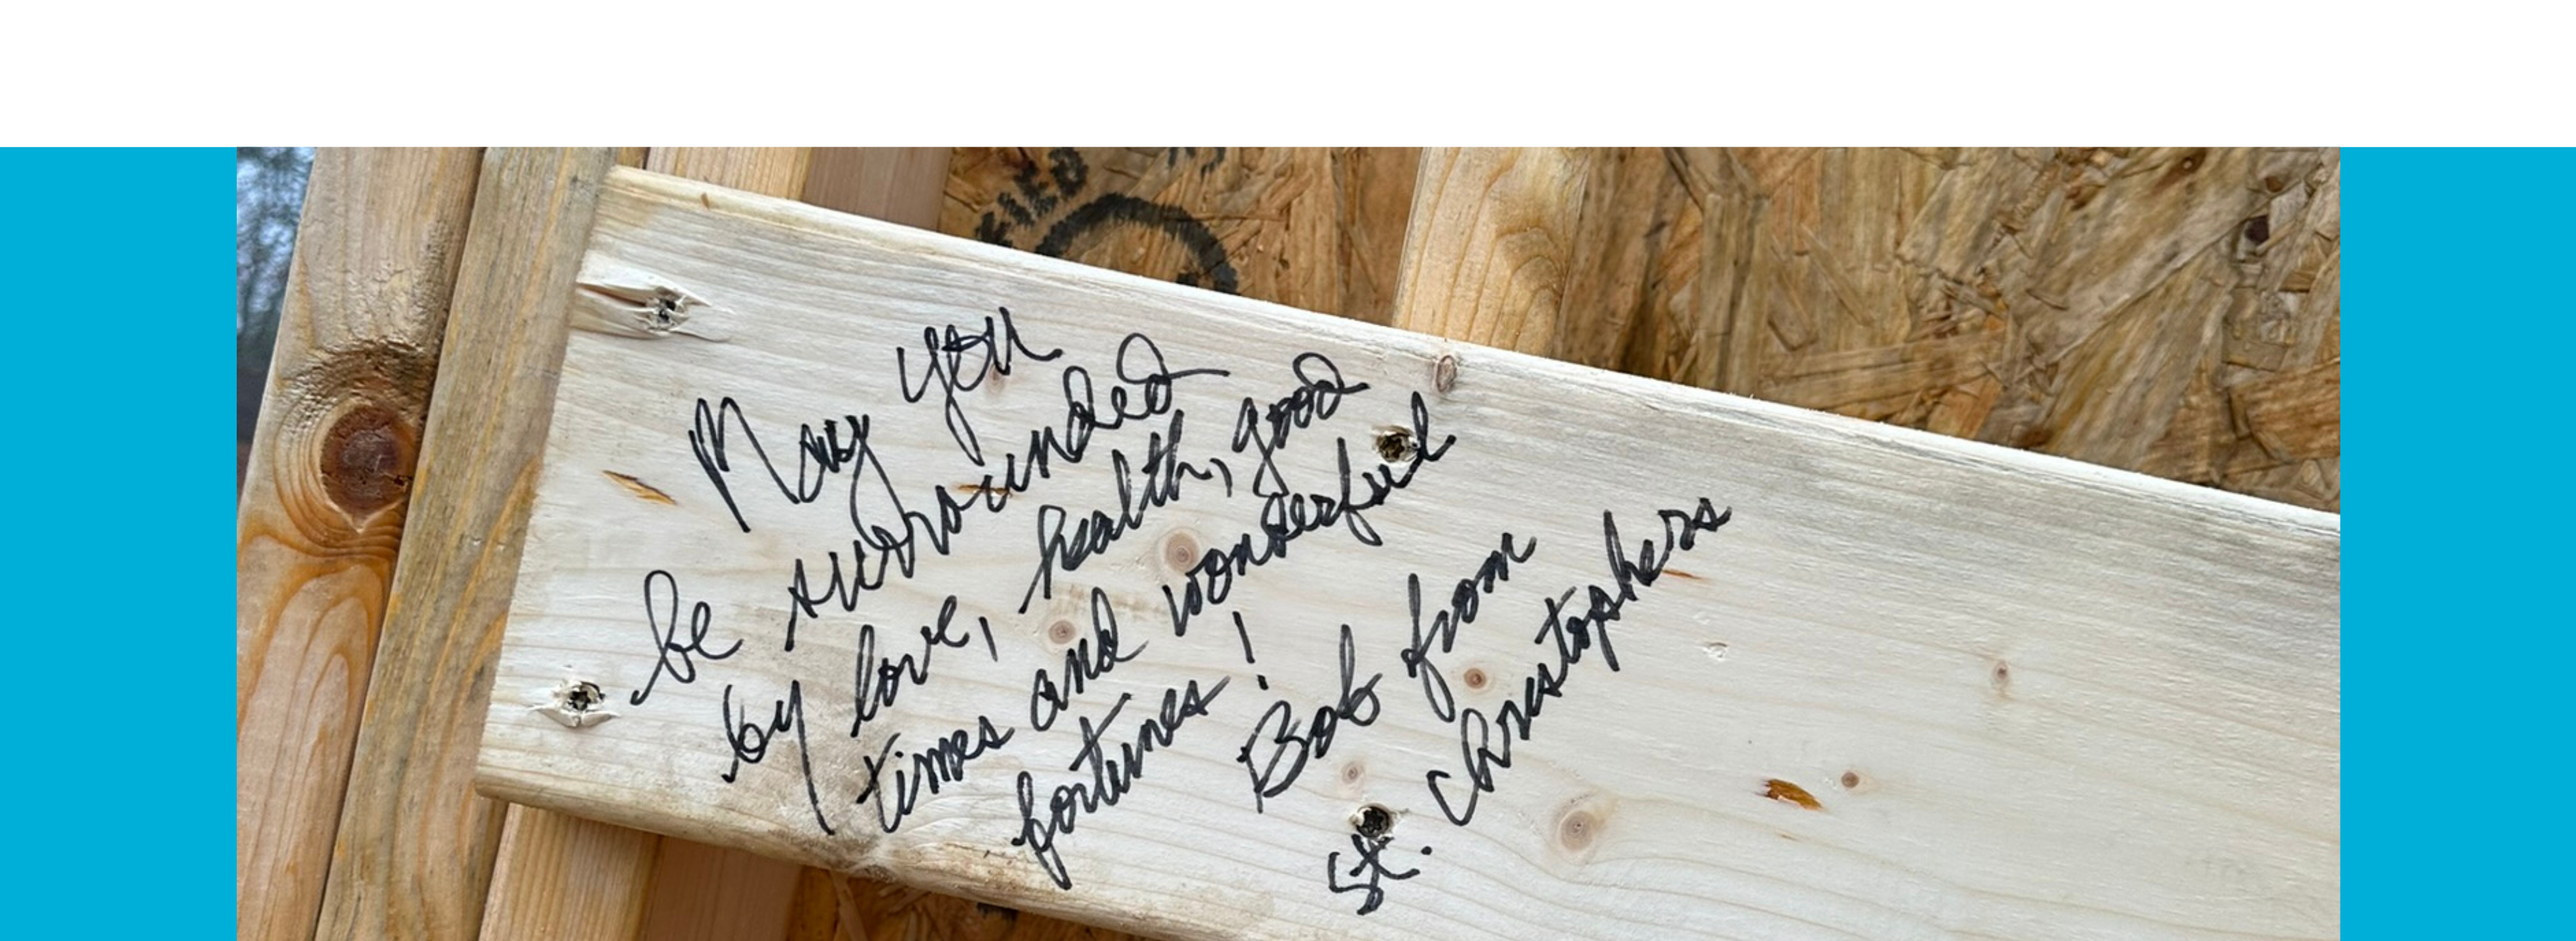 May you
be surrounded
by love, health, good
times and wonderful
fortunes!
Bob from
St. Christophers